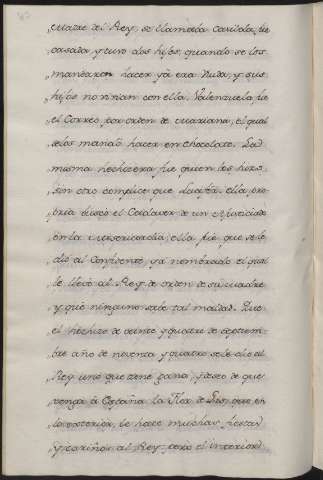 Madre del Rey, se llamaba Casilda, fue
casada, y tuvo dos hijos, quando se los
mandaron hacer ya era Viuda, y sus
hijos no vivian con ella. Valenzuela fue
el Correo, por orden de Mariana, el qual
se los mandó hacer en chocolate. La
misma hechizera fue quien los hizo,
con otro complice que daba. ella pro
pria buscó el Cadaver de un Ajusticiado
en la Misericordia, ella fue que se le
dió al Confidente, ya nombrado el qual
le llevó al Rey de orden de su Madre
y que ninguno sabe tal maldad. Que
el hechizo de veinte y quatro de Septiem-
bre año de noventa y quatro se le dio al
Rey uno que tiene gana, y deseo de que
venga à España la Flor de Lis, que en
lo exterior, le hace muchas fiestas
y cariños al Rey, pero el interior